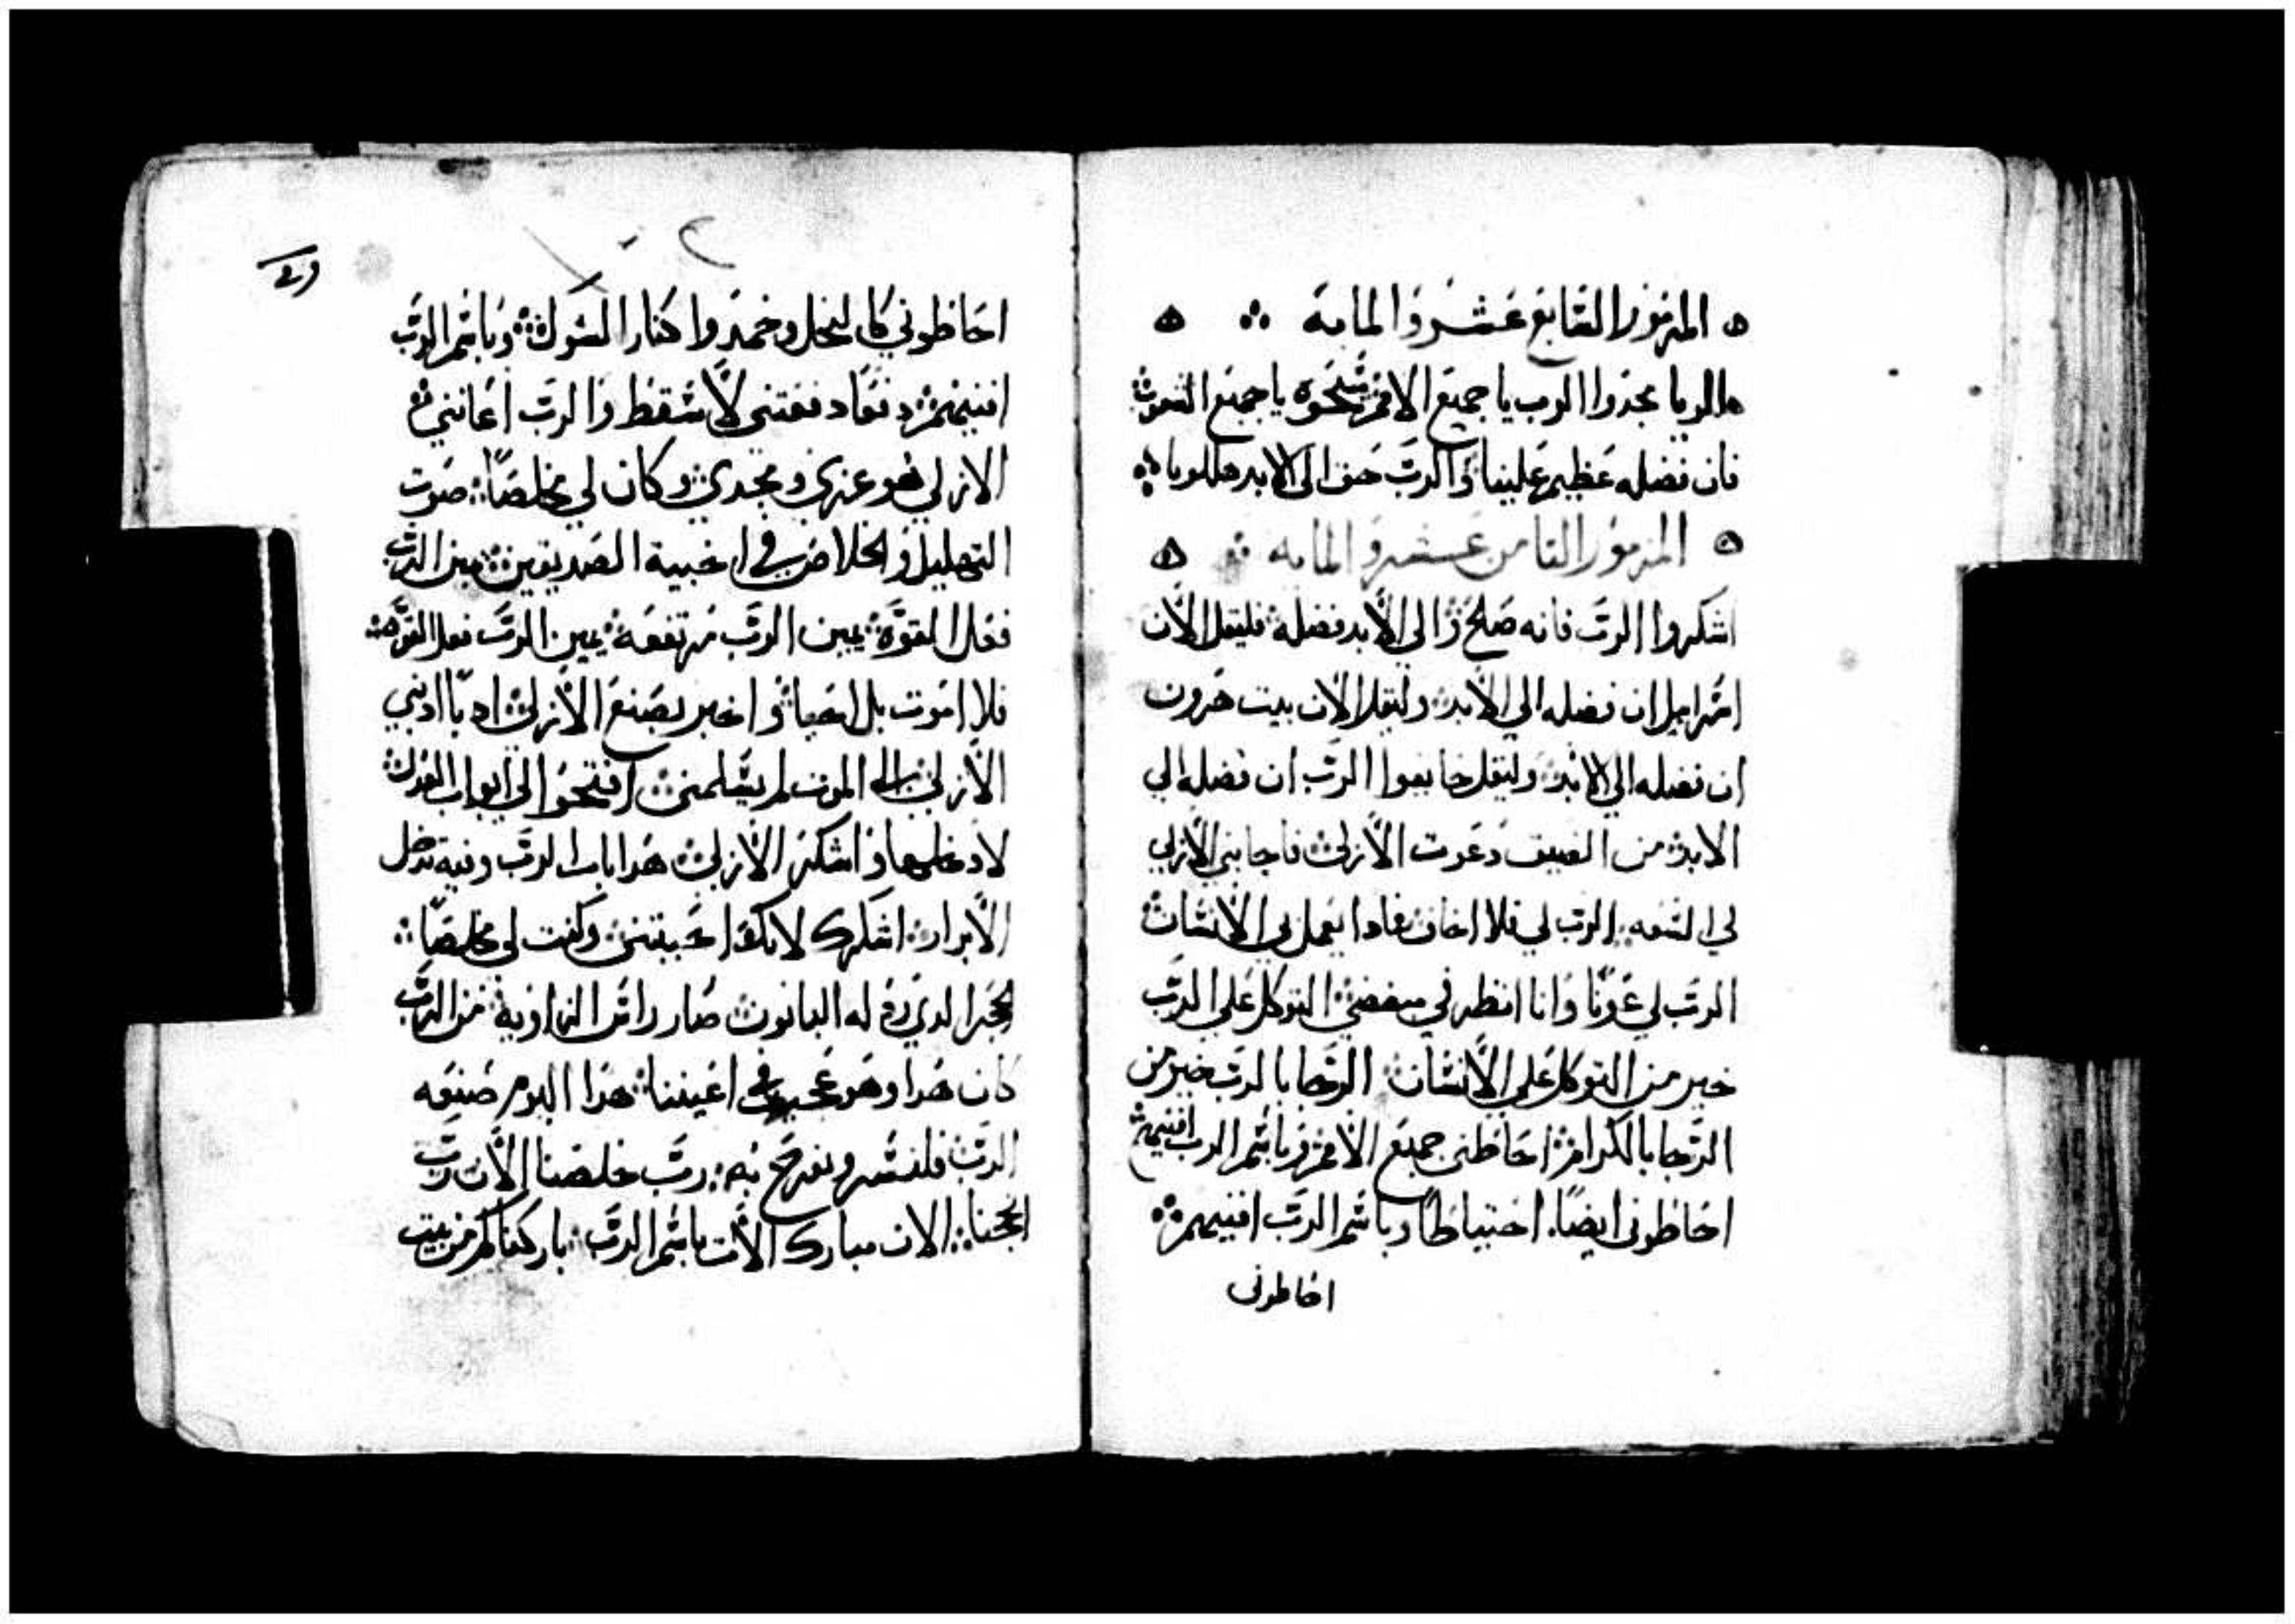 المزمور السابع عشر والمايه
هللويا مجدوا الرب يا جميع الامم سبحوه يا جميع الشعوب
فان فضله عظيم علينا والرب حق الى الابد هللويا
المزمور الثامن عشر والمايه
اشكروا الرب فانه صلح والي الابد فضله فليقل الان
اسرايل ان فضله الي الابد وليقل الان بيت هرون
ان فضله الي الابد وليقل خايفوا الرب ان فضله الي
الابد من الضيق دعوت الازلي فاجابني الازلي
لي السعه الرب لي فلا اخاف مادا يعمل بي الانسان
الرب لي عونا وانا انظر في مبغضي التوكل علي الرب
خير من التوكل علي الانسان الرجا بالرب خير من
الرجا بالكرام احاطني جميع الامم وباسم الرب افنيهم
احاطوني ايضا احتياطا وباسم الرب افنيهم
احاطوني
احاطوني كالنحل وخمدوا كنار الشوك وباسم الرب
افنيهم دفعا دفعتني لاسقط والرب اعانني
الازلي هو عزي ومجدي وكان لي مخلصا صوت
التهليل والخلاص في اخبية الصديقين يمين الرب
فعل القوة يمين الرب مرتفعه يمين الرب فعل القوه
فلا اموت بل احيا واخبر بصنع الازلي ادبا ادبني
الازلي والي الموت لم يسلمني افتحوا الي ابواب العدل
لادخلها واشكر الازلي هدا باب الرب وفيه تدخل
الابرار اشكرك لانك اجبتني وكنت لي مخلصا
الحجر الدي رذله البانون صار راس الزاوية من الرب
كان هدا وهو عجيب في اعيننا هدا اليوم صنعه
الرب فلنسر ونفرح به رب خلصنا الان رب
انجحنا الان مبارك الات باسم الرب باركناكم من بيت